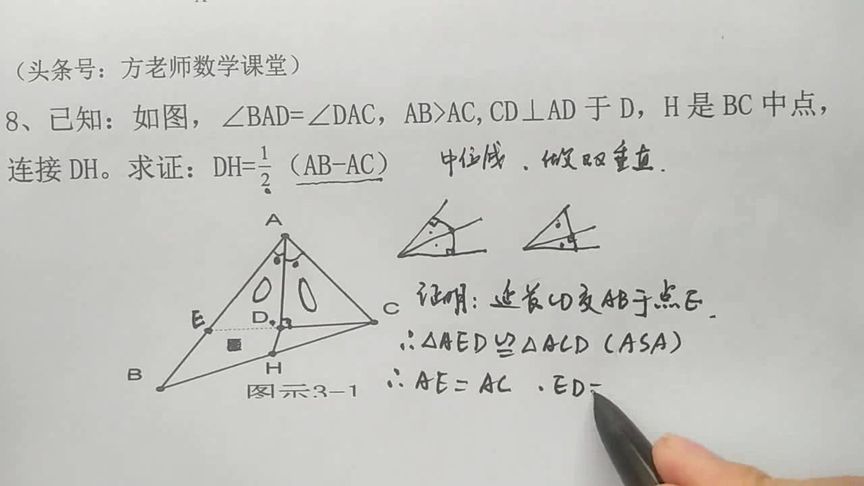 (头条号：方老师数学课堂)
8、已知：如图，∠BAD=∠DAC，AB>AC,CD⊥AD 于 D，H 是 BC 中点，
连接 DH。求证：DH=1/2（AB-AC） 中位线、做双垂直.
A
证明：延长CD交AB于点E.
E D C
∴△AED≌△ACD (ASA)
B H
∴AE=AC .ED=
图示3-1